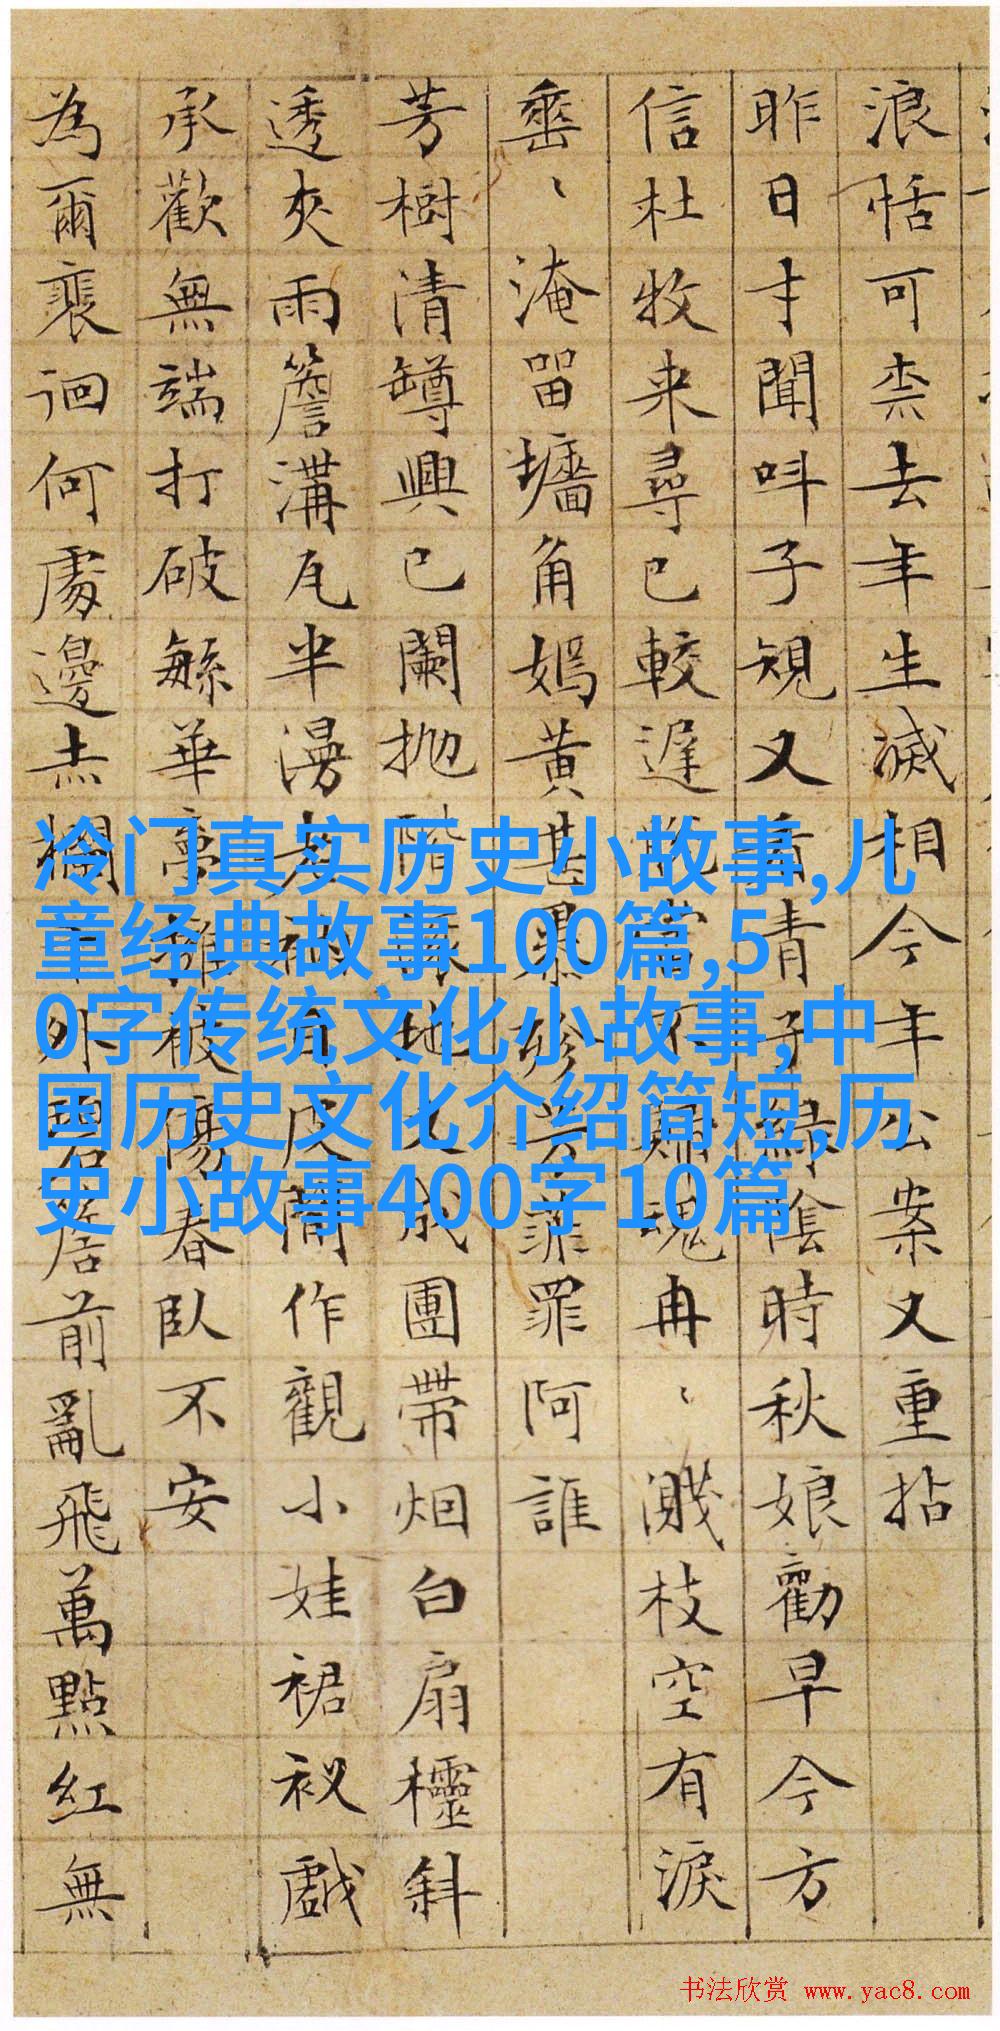 浪恬可柰去年生滅相今年公案又重拈
昨日才聞呌子規又看青子綠陰時秋娘勸早今方
信杜牧来尋已較遲不歸魂冉、濺枝空有淚
垂、淹留墻角嫣黃甚暴殄芳菲罪阿誰
芳樹清罇興已闌抛階地又成團帶烟白扇欞斜
透夾雨簷溝瓦半漫作觀小娃裙衩戲
承歡無端打破繁華夢被傷春臥不安
為爾裵徊何處邊赤欄外碧簷前亂飛萬點紅無
冷门真实历史小故事,儿
童经典故事100篇,5
0字传统文化小故事,中
国历史文化介绍简短,历
史小故事400字10篇
书法欣赏 www.yac8.com